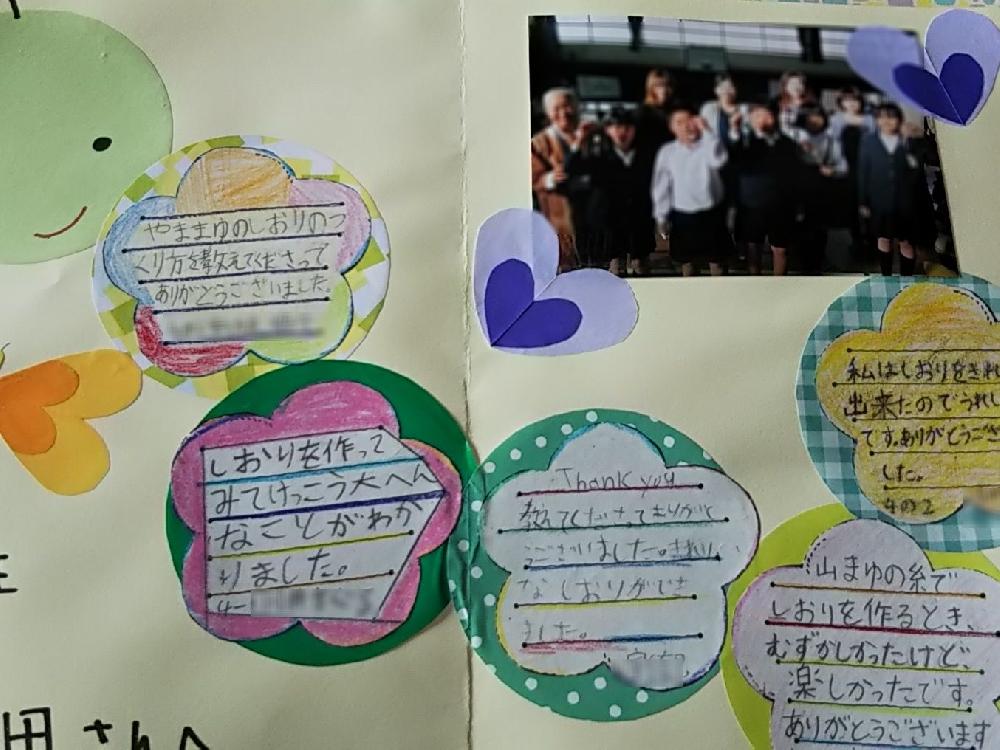 やままゆのしおりのつ
くり方を教えてくださって
ありがとうございました。
しおりを作って
みてけっこう大へん
なことがわか
りました。
4-
Thank you
教えてくださってありがと
うございました。きれい
なしおりができ
ました。
私はしおりをきれ
出来たのでうれし
です。ありがとうござ
した。
4の2
山まゆの糸で
しおりを作るとき、
むずかしかったけど、
楽しかったです。
ありがとうございます
田さんへ